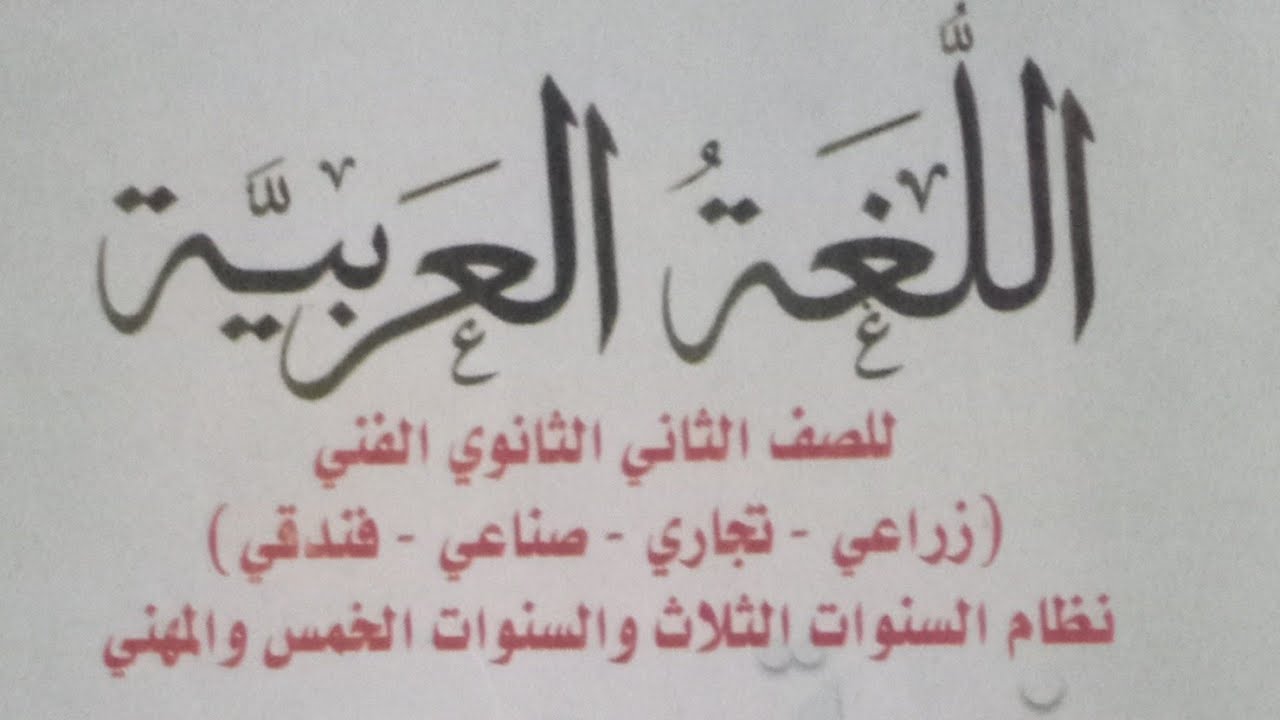 اللُّغَةُ العَرَبيَّة
للصف الثاني الثانوي الفني
(زراعي - تجاري - صناعي - فندقي)
نظام السنوات الثلاث والسنوات الخمس والمهني